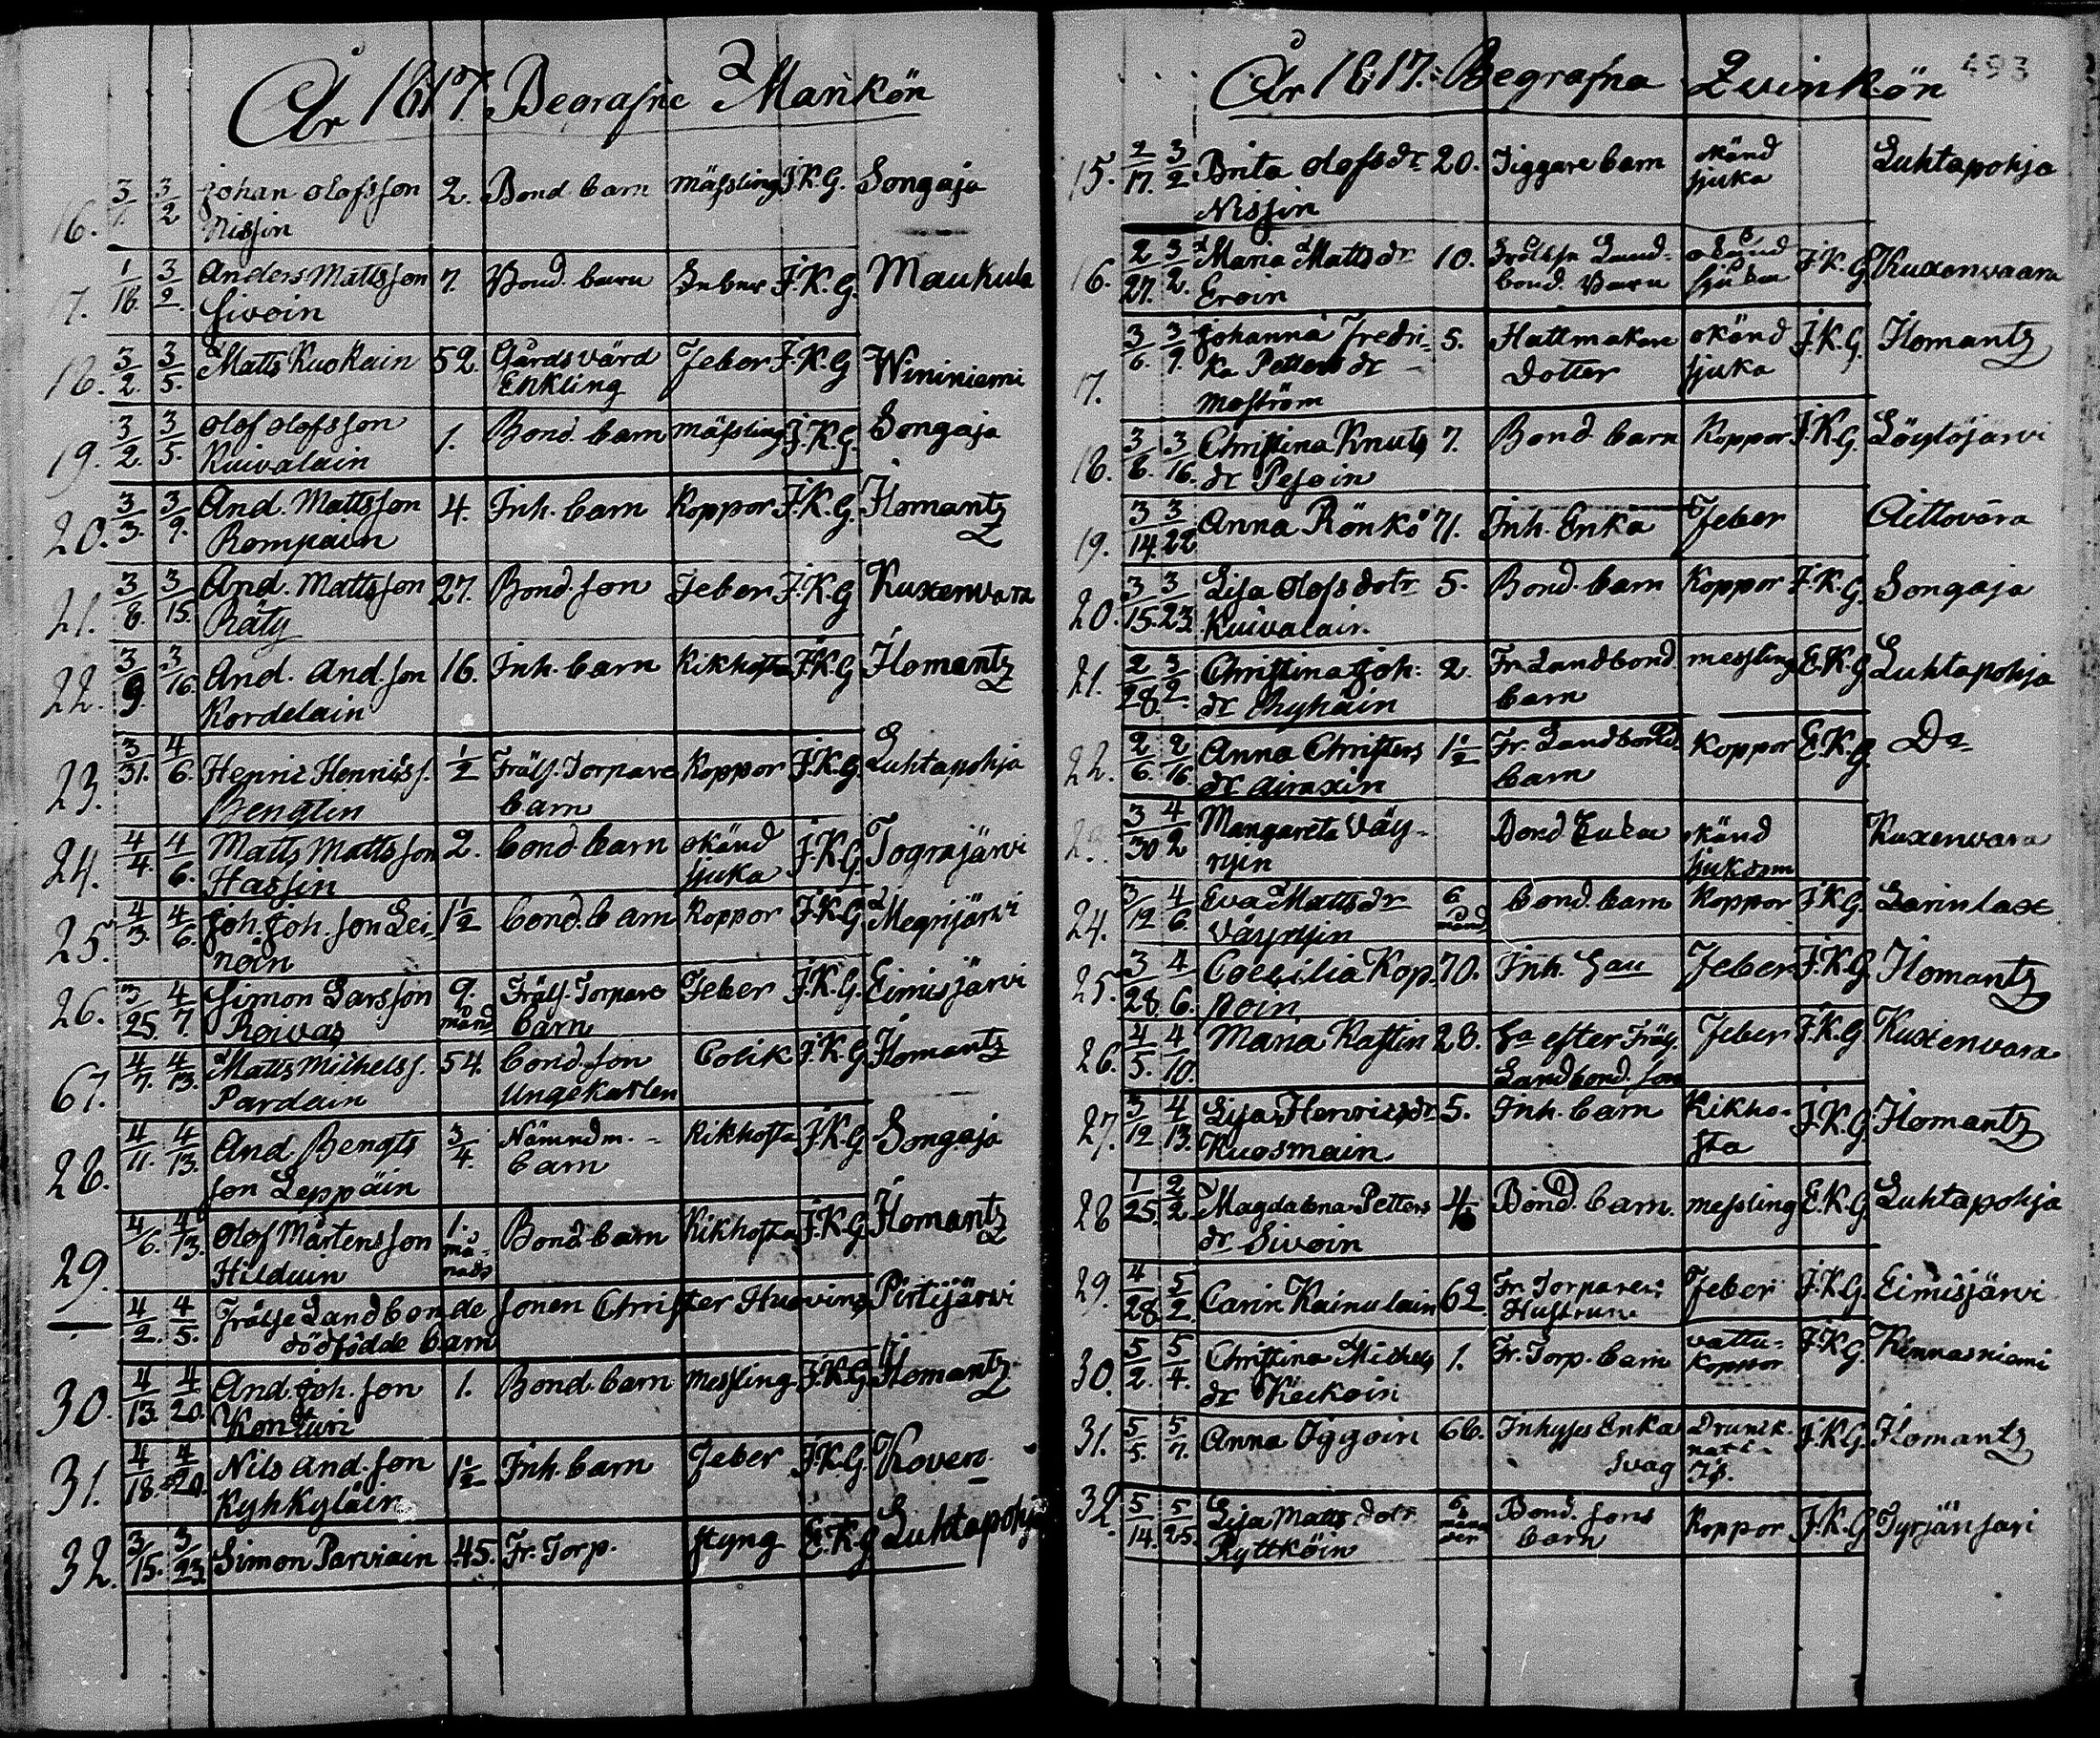 År 1817. Begrafne Mankön
16. 3/1. 3/2 Johan Olofsson 2. Bond. barn mässling J.K.G. Songaja
Nissin
17. 1/18. 3/2. Anders Mattsson 7. Bond. barn Feber J.K.G. Maukula
Sivoin
18. 3/2. 3/5. Matts Kuokain 52. Gårdsvärd Feber J.K.G Wininiemi
Enkling
19. 3/2. 3/5. Olof Olofsson 1. Bond. barn mässling J.K.G. Songaja
Kuivalain
20. 3/3. 3/9. And. Mattsson 4. Inh. barn Koppor J.K.G. Ilomantz
Rompain
21. 3/8. 3/15. And. Mattsson 27. Bond. son Feber J.K.G Kuxenvara
Räty
22. 3/9. 3/16. And. And.son 16. Inh. barn Kikhosta J.K.G Ilomantz
Kordelain
23. 3/31. 4/6. Henric Henricss. 1/2 Fräls. Torpare Koppor J.K.G. Luhtapohja
Bengtin barn
24. 4/4. 4/6. Matts Mattsson 2. bond. barn okänd J.K.G. Tograjärvi
Hassin sjuka
25. 4/3. 4/6. Joh. Joh. son Lei- 1 1/2 bond. barn Koppor J.K.G. Megrijärvi
noin
26. 3/25. 4/7. Simon Larsson 9. Fräls. Torpare Feber J.K.G. Eimisjärvi
Roivas månd barn
67. 4/7. 4/13. Matts Michelss. 54. bond. son Colik J.K.G Ilomantz
Pardain Ungekarlen
28. 4/11. 4/13. And Bengts 3/4. Nämndm. barn Kikhosta J.K.G. Songaja
son Leppäin
29. 4/6. 4/13. Olof Mårtensson 1. Bond. barn Kikhosta J.K.G. Ilomantz
Hilduin må-
nads
4/2. 4/5. Frälse Landbonde sonen Christer Huovins Pirtijärvi
dödfödde barn
30. 4/13. 4/20. And. Joh. son 1. Bond. barn messling J.K.G. Ilomantz
Konturi
31. 4/18. 4/20. Nils And. son 1 1/2 Inh. barn Feber J.K.G Kovero
Kyhkyläin
32. 3/15. 3/23. Simon Parviain 45. Fr. Torp. styng E.K.G Luhtapohja
År 1817. Begrafna Qvinkön 493
15. 2/17. 3/2 Brita Olofs dr 20. Tiggare barn okänd Luhtapohja
Nissin sjuka
16. 2/27. 3/2. Maria Matts dr 10. Frälse Land- okänd J.K.G. Kuxenvaara
Eroin bond. barn sjuka
17. 3/6. 3/9. Johanna Fredri- 5. Hattmakare okänd J.K.G. Ilomantz
ka Petters dr Dotter sjuka
Moström
18. 3/6. 3/16. Christina Knuts 7. Bond. barn Koppor J.K.G. Löytöjärvi
dr Pesoin
19. 3/14. 3/22 Anna Rönkö 71. Inh. Enka Feber Aittovara
20. 3/15. 3/23. Lisa Olofs dotr 5. Bond. barn Koppor J.K.G. Songaja
Kuivalain.
21. 2/28. 3/2. Christina Joh. 2. Fr. Landbond messling E.K.G Luhtapohja
dr Ryhäin barn
22. 2/6. 2/16. Anna Christers 1 1/2 Fr. Landbonds Koppor E.K.G Do
dr Airaxin barn
3/30 4/2 Margareta Väy- Bond Enka okänd Kuxenvara
rysin sjukdom
24. 3/12 4/6. Eva Matts dr 6 bond. barn Koppor J.K.G. Larinlax
Väyrysin månd
25. 3/28. 4/6. Coecilia Kop- 70. Inh. Feber J.K.G Ilomantz
poin
26. 4/5. 4/10. Maria Kastin 28. efter Fräls. Feber J.K.G Kuxenvara
Landbond. son
27. 3/12 4/13. Lisa Henrics dr 5. Inh. barn Kikho- J.K.G Ilomantz
Kuosmain sta
28 1/25. 2/2. Magdalena Petters 4 Bond. barn messling E.K.G Luhtapohja
dr Sivoin
29. 4/28. 5/2. Carin Kainulain 62. Fr. Torparens Feber J.K.G. Eimisjärvi
Hustrun
30. 5/2. 5/4. Christina Michels 1. Fr. Torp. barn vattu- J.K.G. Kinnasniemi
dr Keckoin koppor
31. 5/5. 5/7. Anna Oggoin 66. Inhyses Enka Drunk. J.K.G. Ilomantz
svag
32. 5/14. 5/25. Lisa Matts dotr 6 Bond. sons Koppor J.K.G Tyrjänsari
Ryttköin barn